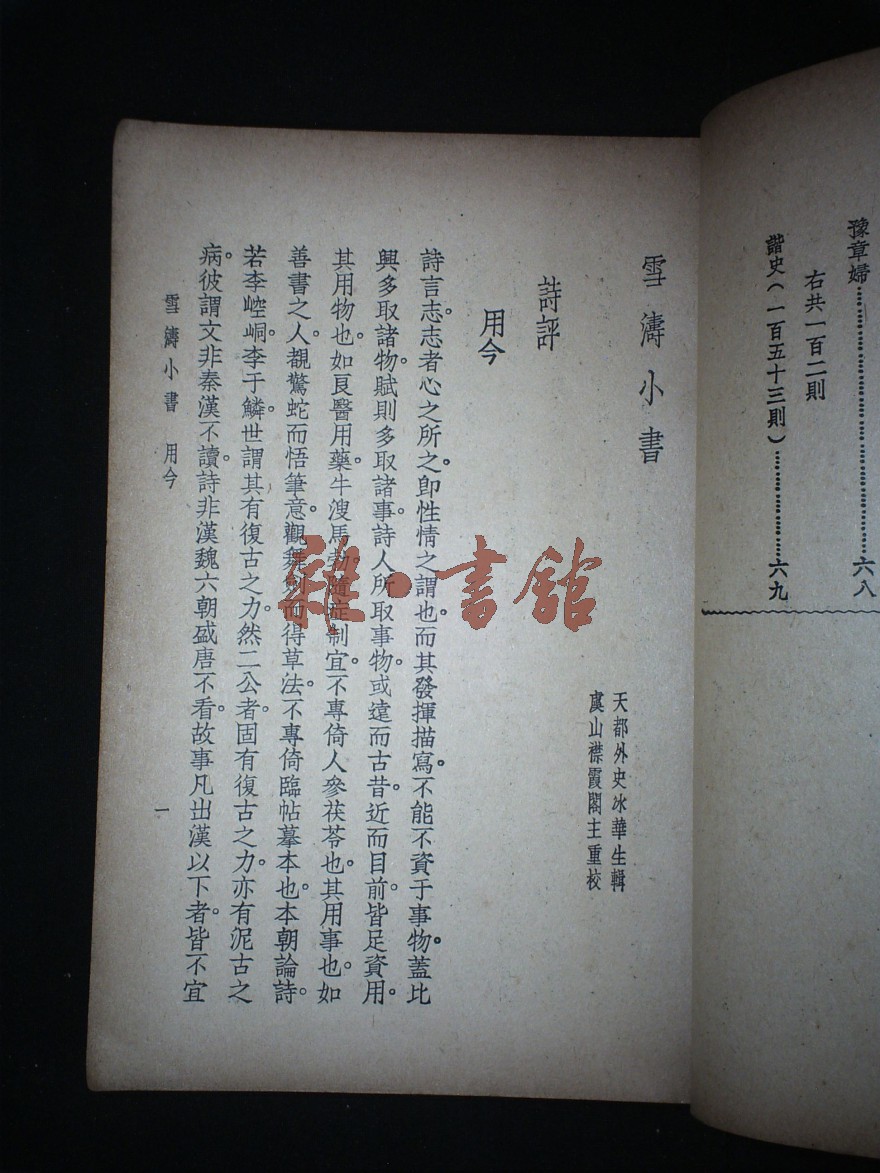 豫章婦⋯⋯⋯⋯⋯⋯⋯⋯六八
右共一百二則
諧史(一百五十三則)⋯⋯⋯⋯六九
雪濤小書
天都外史冰華生輯
虞山襟霞閣主重校
詩評
用今
詩言志。志者心之所之。卽性情之謂也。而其發揮描寫。不能不資于事物。蓋比
興多取諸物。賦則多取諸事。詩人所取事物。或遠而古昔。近而目前。皆足資用。
其用物也。如良醫用藥。牛溲馬勃。隨症制宜。不專倚人參茯苓也。其用事也。如
善書之人。覩驚蛇而悟筆意。觀舞劍而得草法。不專倚臨帖摹本也。本朝論詩。
若李崆峒。李于鱗。世謂其有復古之力。然二公者。固有復古之力。亦有泥古之
病。彼謂文非秦漢不讀。詩非漢魏六朝盛唐不看。故事凡出漢以下者。皆不宜
雪濤小書 用今
一
雜·書館